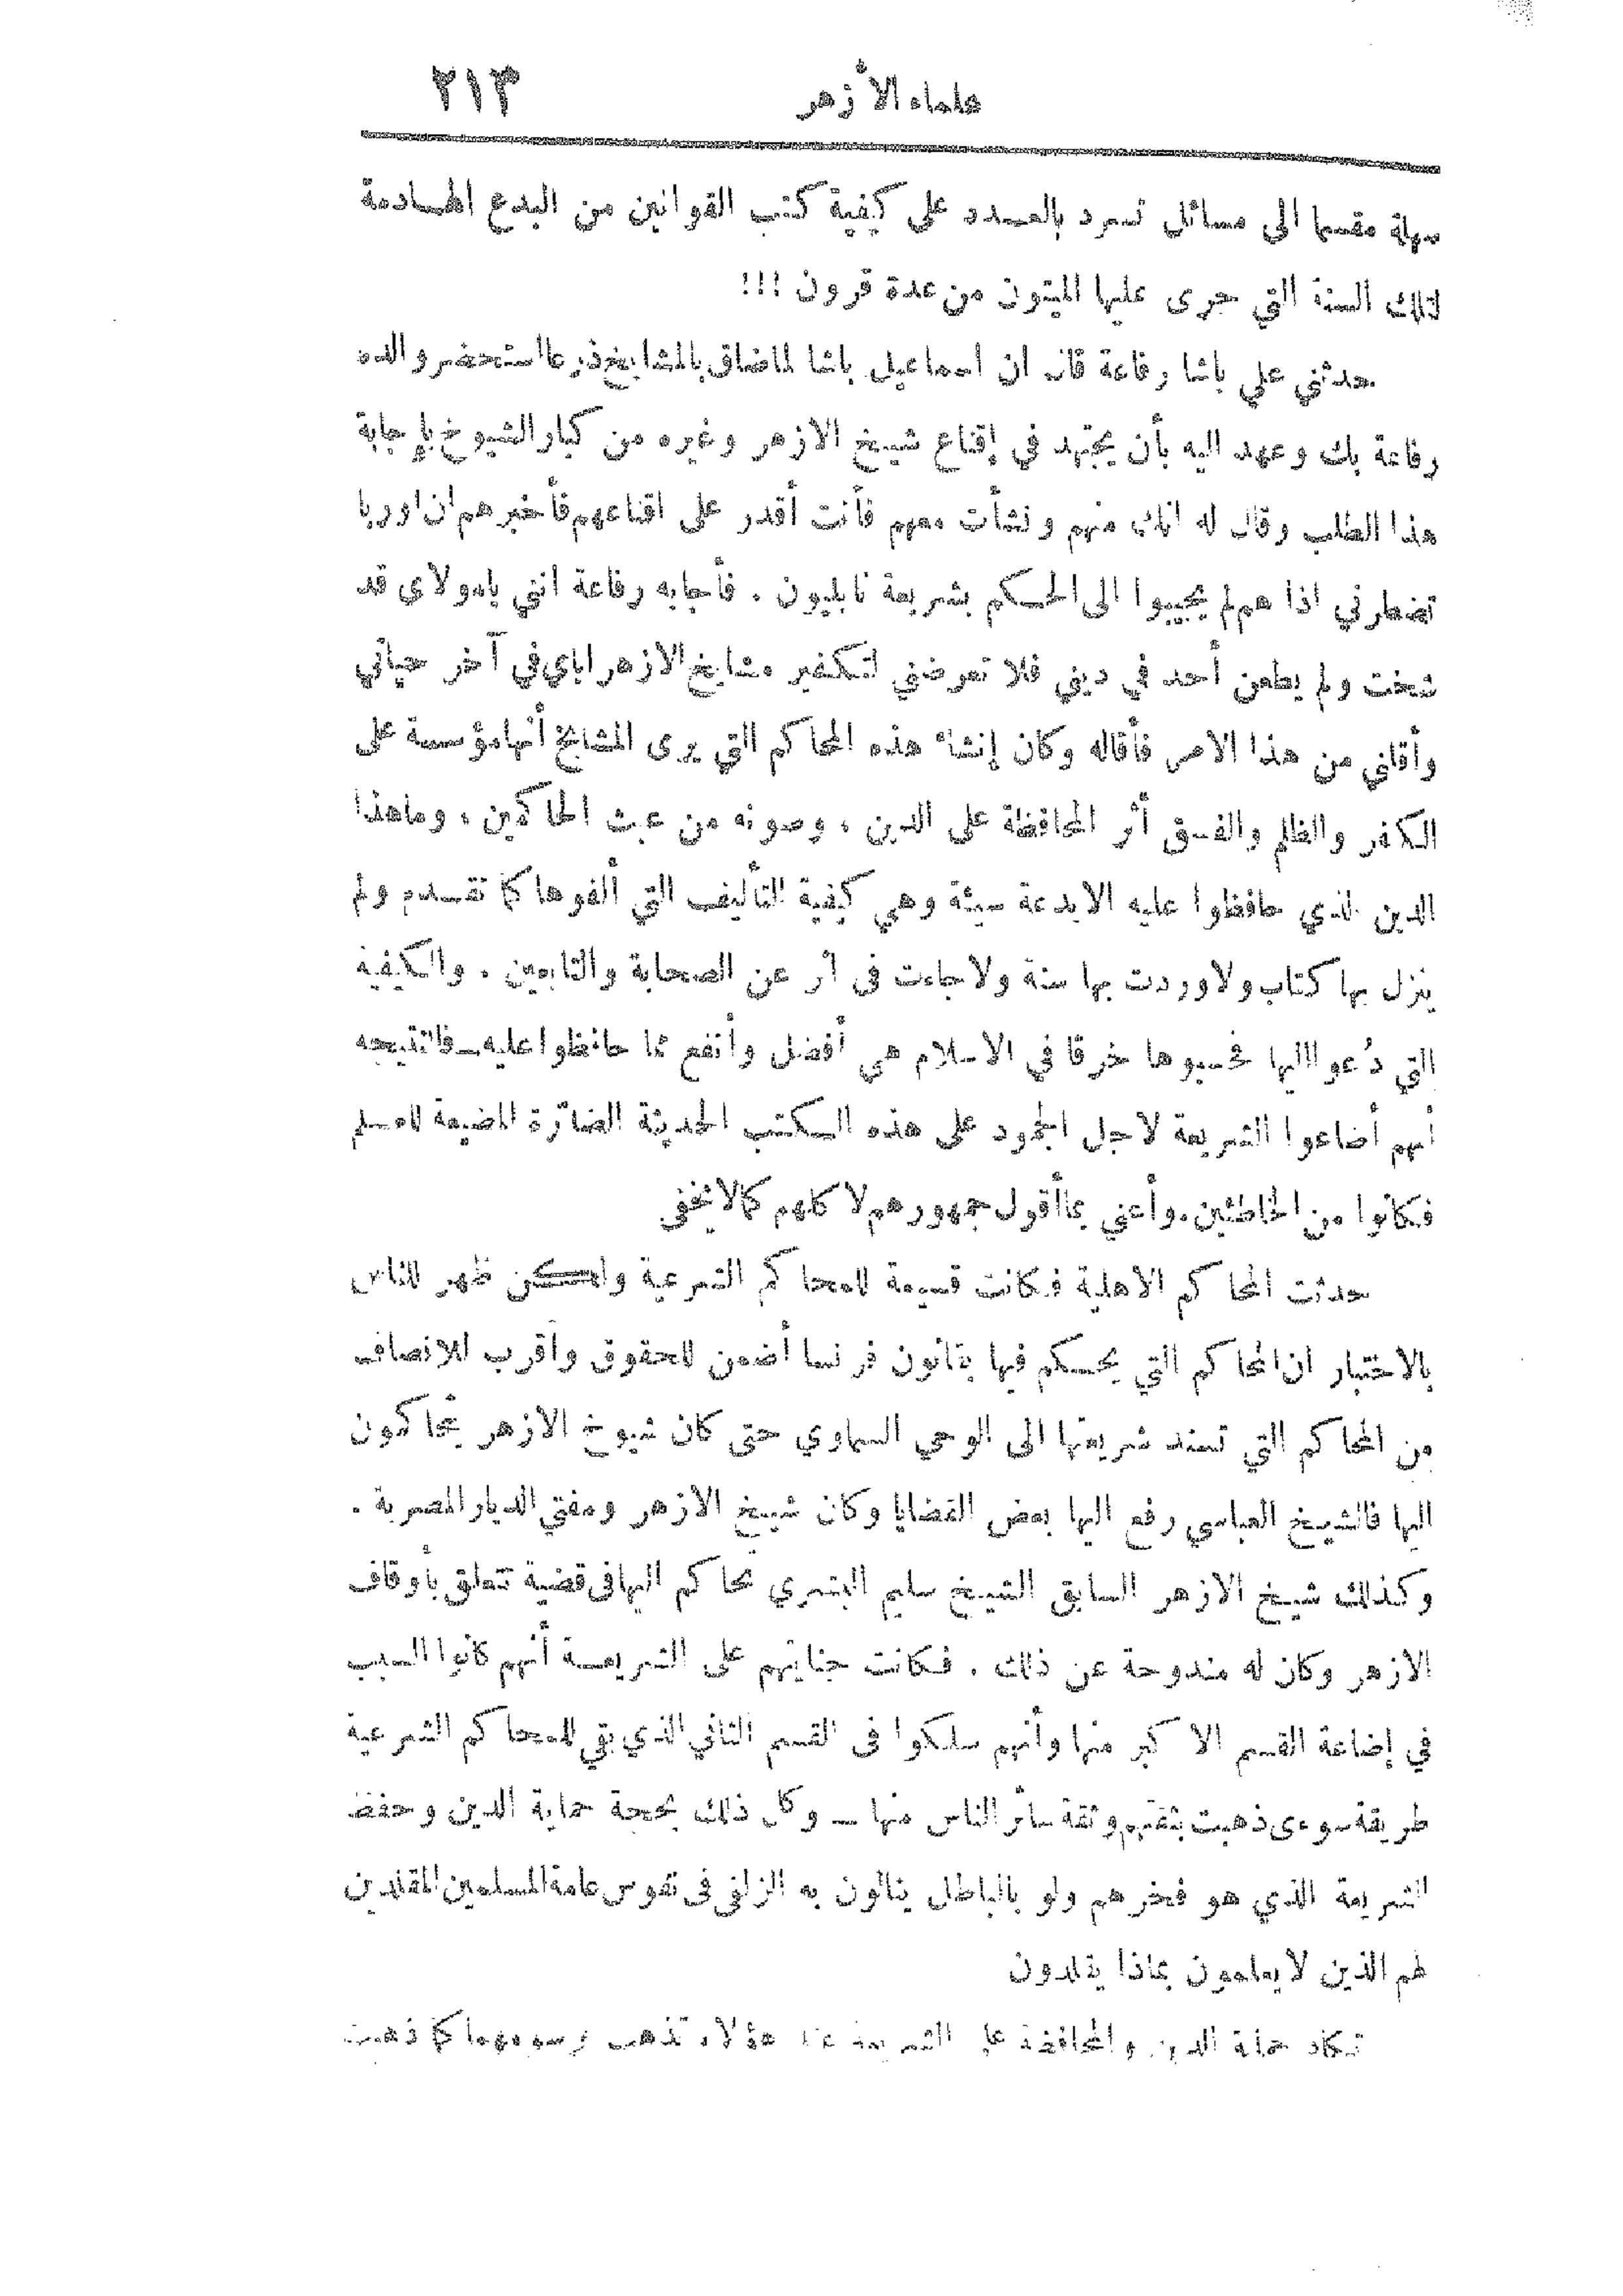 علماء الأزهر ٢١٣
سهلة مقسما الى مسائل تسرد بالعدد على كيفية كتب القوانين من البدع الهادمة
لتلك السنة التي جرى عليها الميتون من عدة قرون !!!
حدثني علي باشا رفاعة قال ان اسماعيل باشا لما ضاق بالمشايخ ذرعا استحضر والده
رفاعة بك وعهد اليه بأن يجتهد في إقناع شيخ الازهر وغيره من كبار الشيوخ بإجابة
هذا الطلب وقال له انك منهم ونشأت معهم فأنت أقدر على اقناعهم فأخبرهم ان اوربا
تضطرني اذا هم لم يجيبوا الى الحكم بشريعة نابليون . فأجابه رفاعة انني يامولاي قد
شخت ولم يطعن أحد في ديني فلا تعرضني لتكفير مشايخ الازهر اياي في آخر حياتي
وأقلني من هذا الامر فأقاله وكان إنشاء هذه المحاكم التي يرى المشايخ أنها مؤسسة على
الكفر والظلم والفسق أثر المحافظة على الدين ، وصونه من عبث الحاكمين ، وما هذا
الدين الذي حافظوا عليه الا بدعة سيئة وهي كيفية التأليف التي ألفوها كما تقدم ولم
ينزل بها كتاب ولا وردت بها سنة ولا جاءت في أثر عن الصحابة والتابعين . والكيفية
التي دُعوا اليها فحسبوها خرقا في الاسلام هي أفضل وأنفع مما حافظوا عليه – فالنتيجة
أنهم أضاعوا الشريعة لاجل الجمود على هذه الكتب الحديثة الضارّة المضيعة للعلم
فكانوا من الخاطئين . وأعني بما أقول جمهورهم لا كلهم كما لا يخفى
حدثت المحاكم الاهلية فكانت قسيمة للمحاكم الشرعية ولكن ظهر للناس
بالاختبار ان المحاكم التي يحكم فيها بقانون فرنسا أضمن للحقوق وأقرب للانصاف
من المحاكم التي تسند شريعتها الى الوحي السماوي حتى كان شيوخ الازهر يتحاكمون
اليها فالشيخ العباسي رفع اليها بعض القضايا وكان شيخ الازهر ومفتي الديار المصرية .
وكذلك شيخ الازهر السابق الشيخ سليم البشري تحاكم اليها في قضية تتعلق بأوقاف
الازهر وكان له مندوحة عن ذلك . فكانت جنايتهم على الشريعة أنهم كانوا السبب
في إضاعة القسم الاكبر منها وأنهم سلكوا في القسم الثاني الذي بقي للمحاكم الشرعية
طريقة سوءى ذهبت بثقتهم وثقة سائر الناس منها – وكل ذلك بحجة حماية الدين وحفظ
الشريعة الذي هو فخرهم ولو بالباطل ينالون به الزلفى في نفوس عامة المسلمين المقلدين
لهم الذين لا يعلمون بماذا يقلدون
تكاد حماية الدين والمحافظة على الشريعة عند هؤلاء تذهب رسومهما كما ذهبت